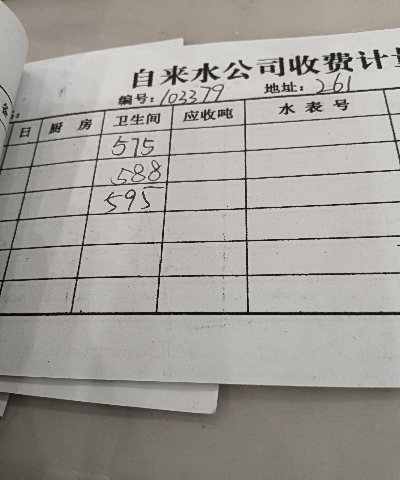 自来水公司收费计
编号：103379 地址：261
日 厨房 卫生间 应收吨 水表号
575
588
595